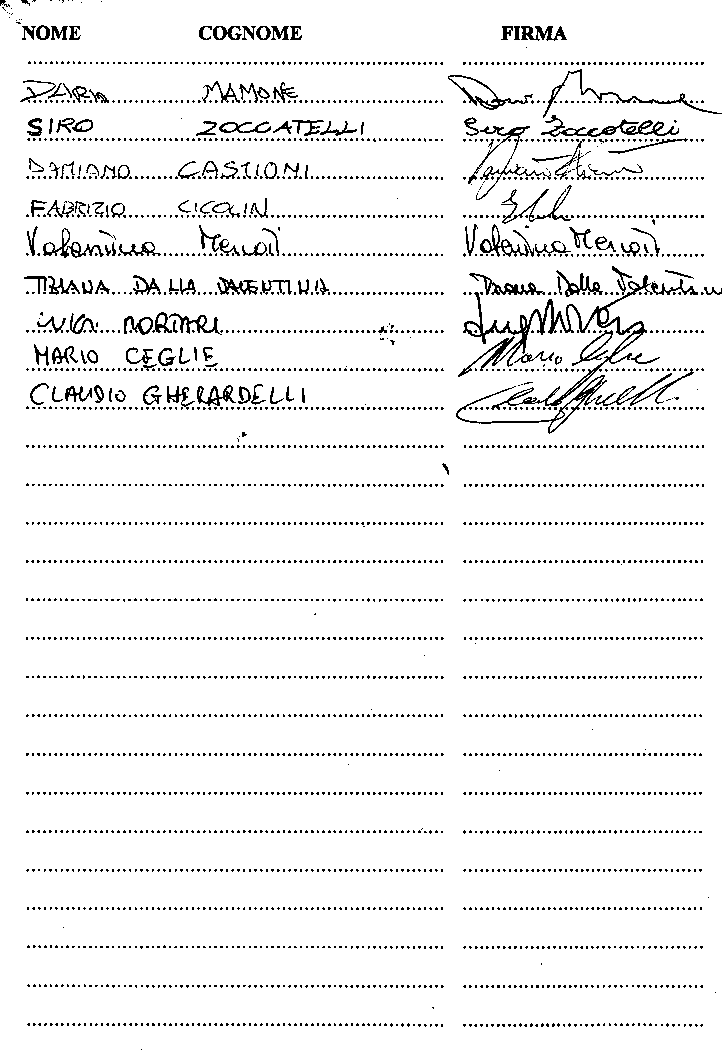 NOME COGNOME FIRMA
MAMONE
SIRO ZOCCATELLI Siro Zoccatelli
DAMIANO CASTIONI
FABRIZIO CICOLIN
Valentina Menoli Valentina Menoli
TIZIANA DALLA VALENTINA Tiziana Dalla Valentina
LUIGI MORTARI
MARIO CEGLIE Mario Ceglie
CLAUDIO GHERARDELLI